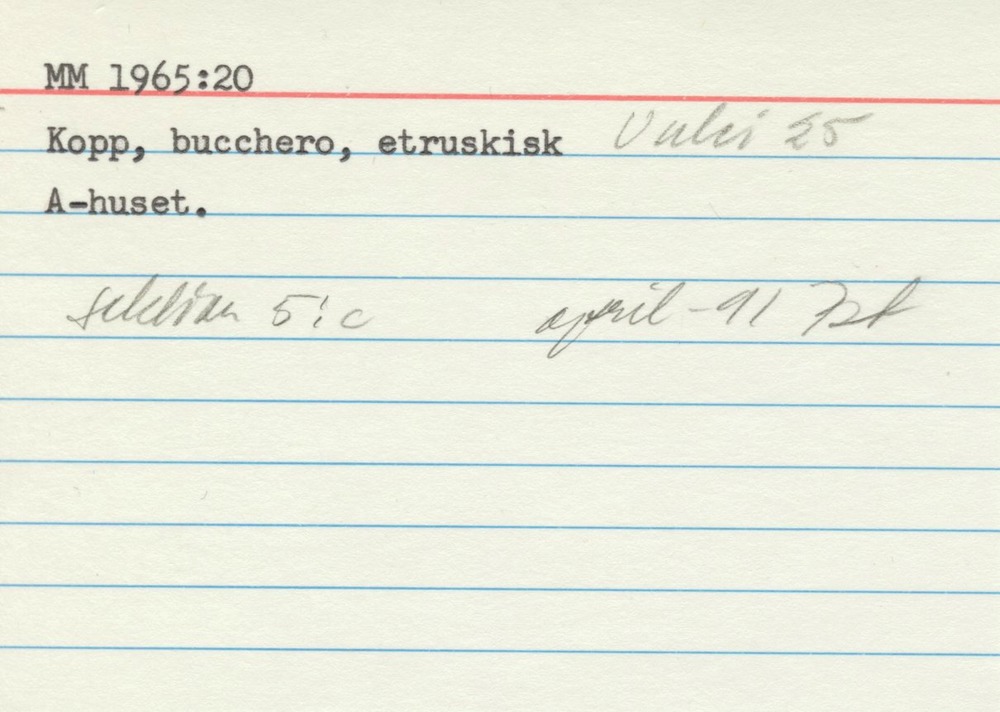 MM 1965:20
Kopp, bucchero, etruskisk Vulci 25
A-huset.
sektion 5:c april -91